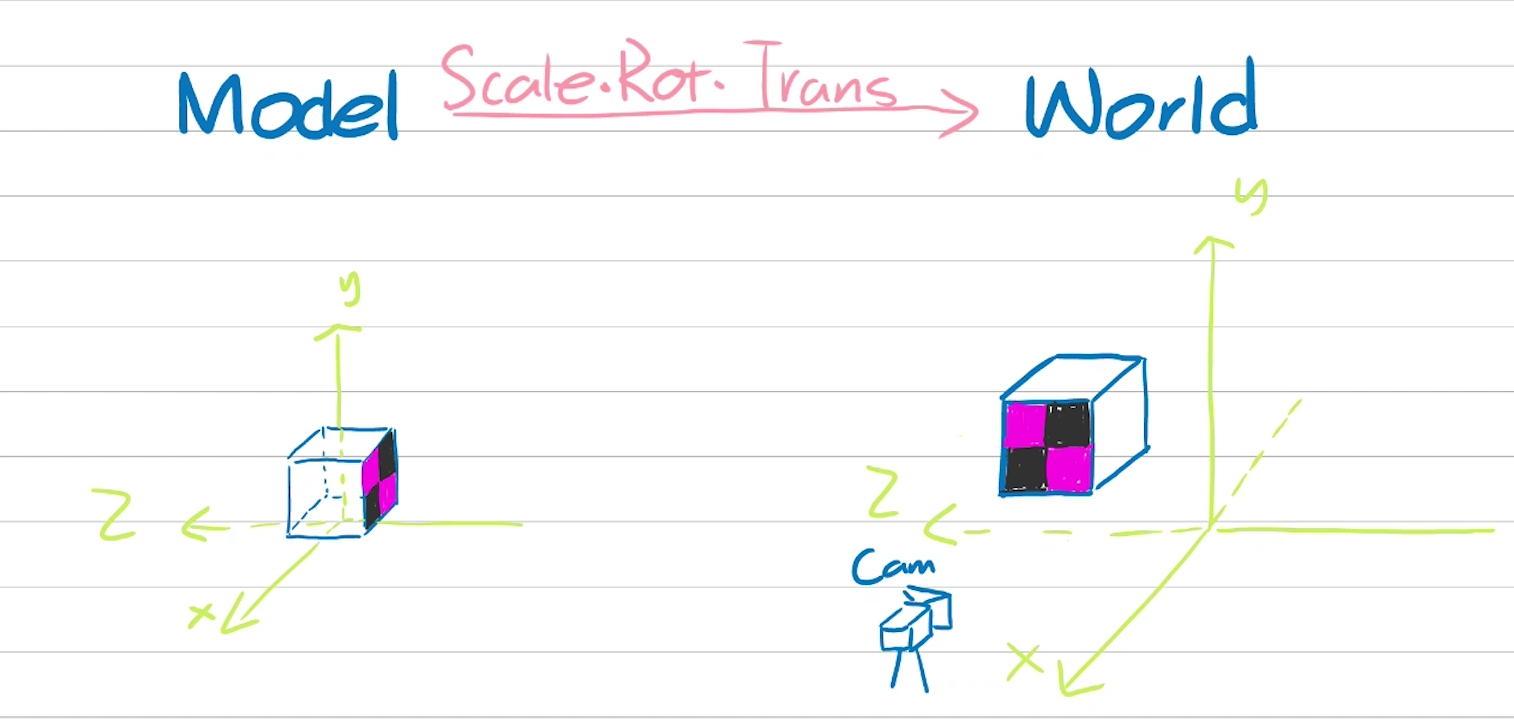 Model Scale.Rot. Trans World
y
y
Z
Z
Cam
x
x